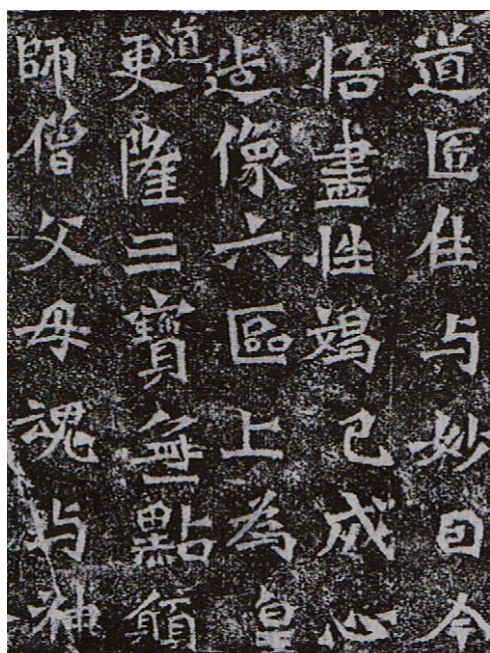 道匠住与妙因今
悟盡性竭己成心
造像六區上為皇
道更隆三寶無點願
師僧父母魂与神